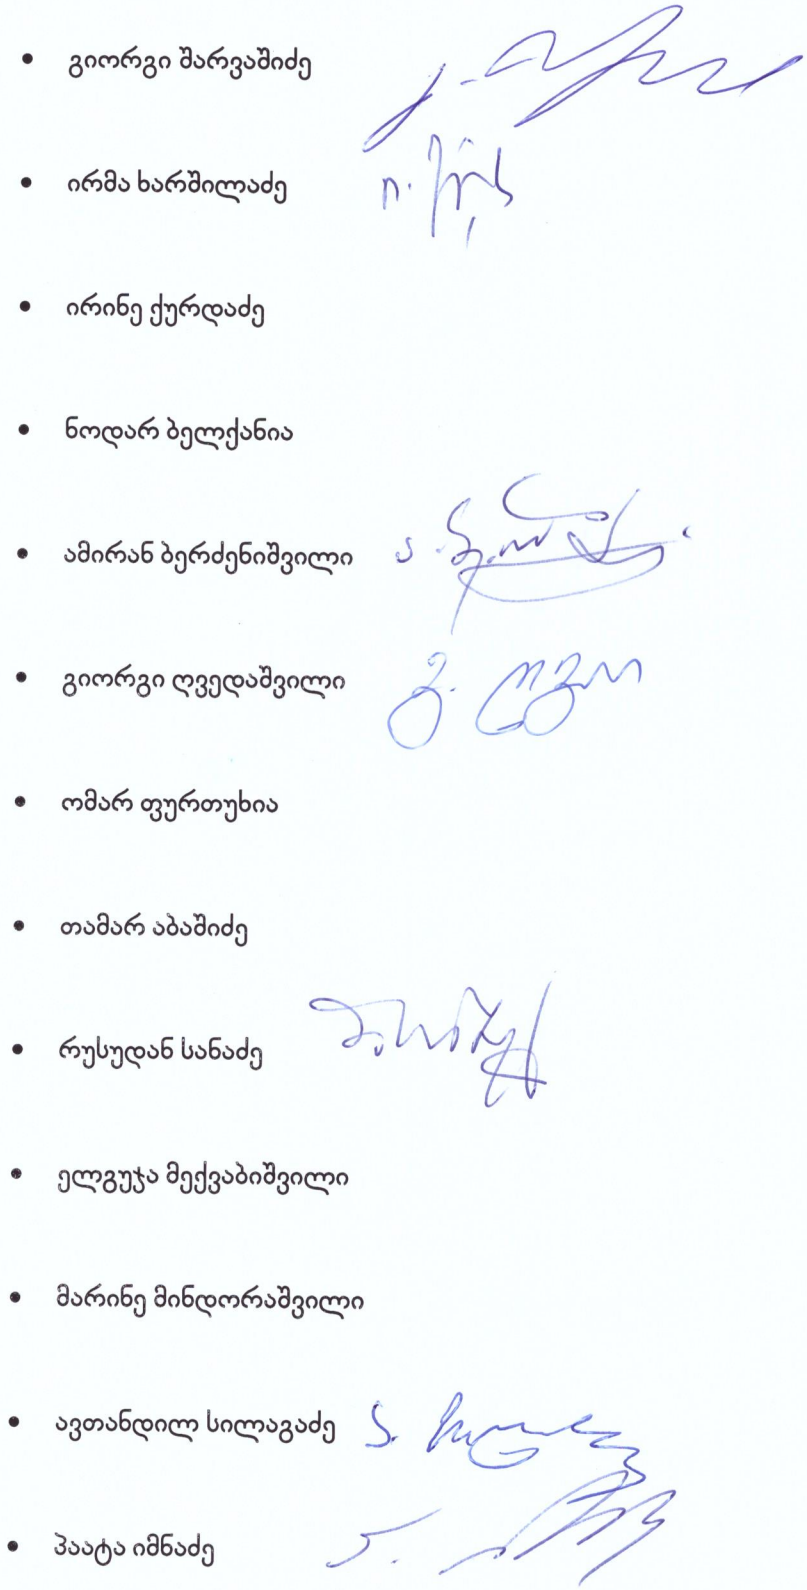 • გიორგი შარვაშიძე
• ირმა ხარშილაძე
• ირინე ქურდაძე
• ნოდარ ბელქანია
• ამირან ბერძენიშვილი
• გიორგი ღვედაშვილი
• ომარ ფურთუხია
• თამარ აბაშიძე
• რუსუდან სანაძე
• ელგუჯა მექვაბიშვილი
• მარინე მინდორაშვილი
• ავთანდილ სილაგაძე
• პაატა იმნაძე